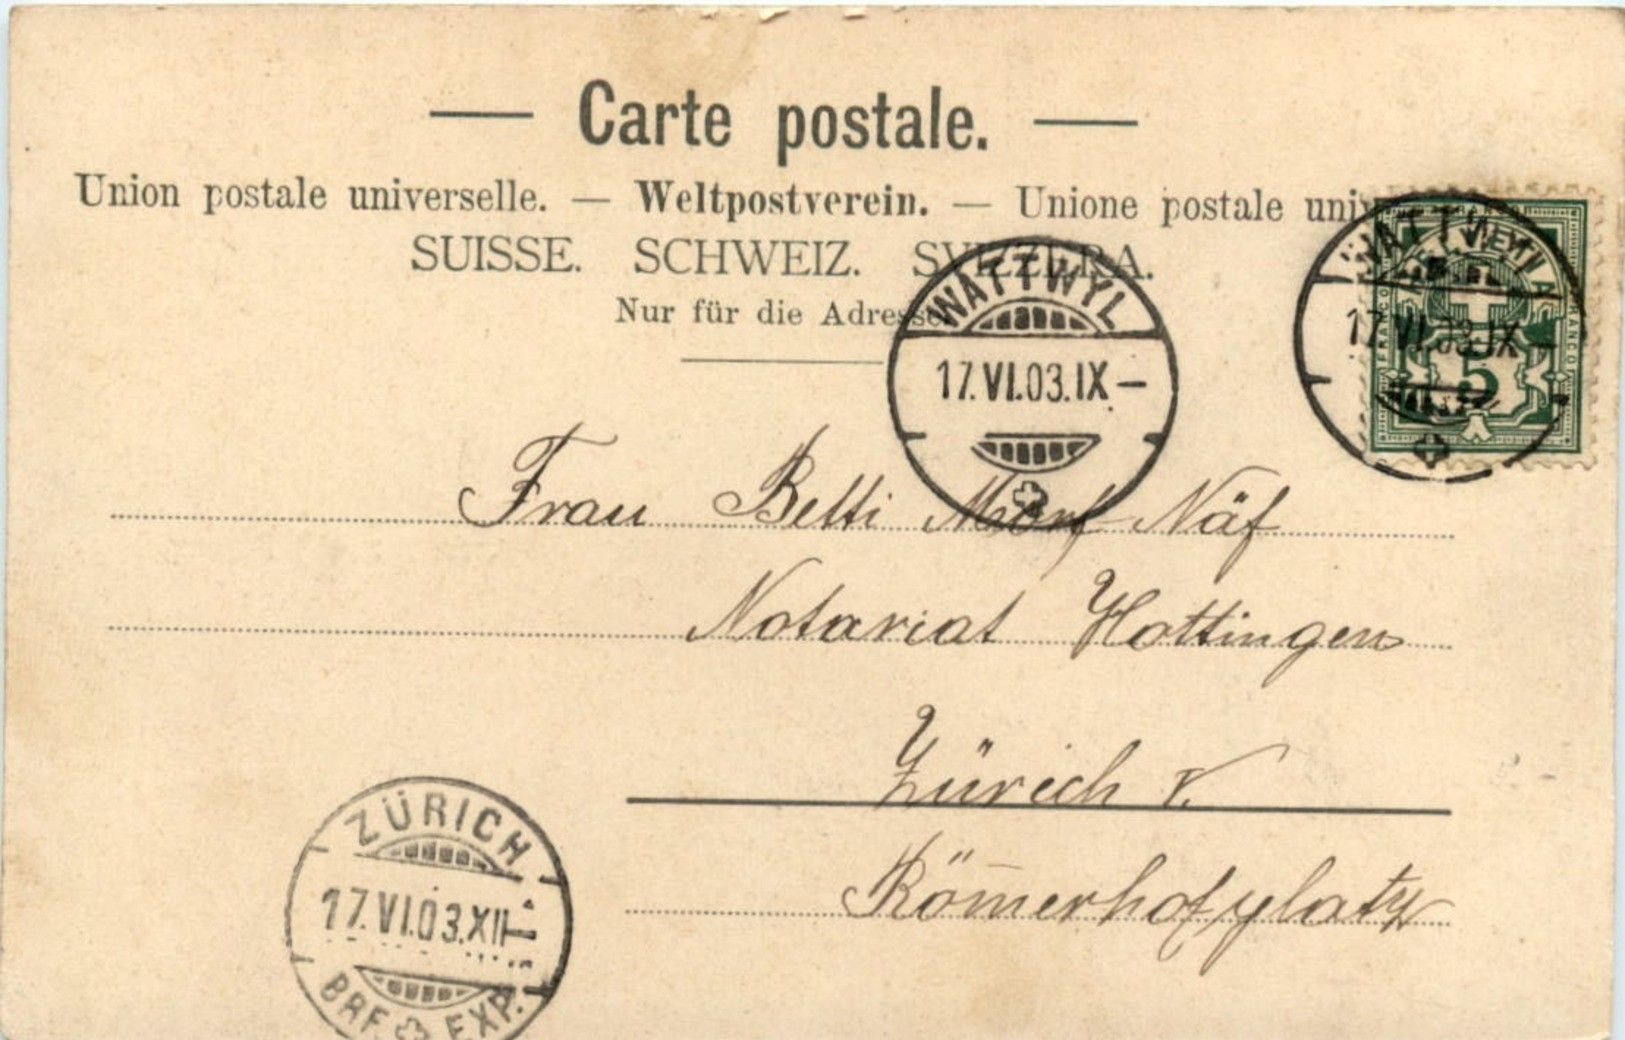 — Carte postale. —
Union postale universelle. — Weltpostverein. — Unione postale uni
SUISSE. SCHWEIZ. SVIZZERA.
Nur für die Adresse.
WATTWYL
17.VI.03.IX–
WATTWYL
17.VI.03.IX–
FRANCO
FRANCO
5
Frau Betti Morf-Näf
Notariat Hottingen
Zürich V.
Römerhofplatz
ZÜRICH
17.VI.03.XII–
BRF. EXP.